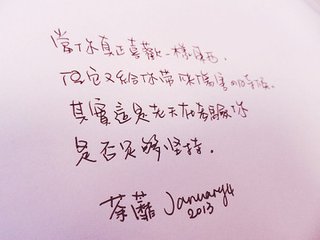 當你真正喜歡一樣東西.
但它又給你帶來傷害的時候.
其實這是老天在考驗你
是否足够坚持.
荼蘼 January 4
2013